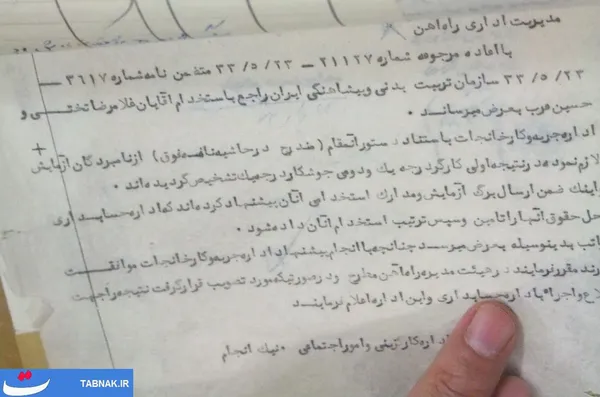 مدیریت اداری راه‌آهن
با اعاده مرجوعه شماره ۲۱۱۲۷ – ۳۳/۵/۲۳ متضمن نامه شماره ۳۶۱۷ –
۳۳/۵/۲۳ سازمان تربیت بدنی و پیشاهنگی ایران راجع باستخدام آقایان غلامرضا تختی و
حسین عرب بعرض میرساند .
اداره جریه و کارخانجات باستناد دستور آنمقام ( مندرج در حاشیه نامه فوق ) از نامبردگان آزمایش
لازم نموده در نتیجه اولی کارگر درجه یک و دومی جوشکار درجه یک تشخیص گردیده‌اند .
و اینک ضمن ارسال برگ آزمایش و مدارک استخدامی آنان پیشنهاد کرده‌اند که اداره حسابداری
محل حقوق آنها را تامین و سپس ترتیب استخدام آنان داده شود .
مراتب بدینوسیله بعرض میرسد چنانچه با انجام پیشنهاد اداره جریه و کارخانجات موافقت
دارند مقرر فرمایند در هیئت مدیره راه‌آهن مطرح و در صورتیکه مورد تصویب قرار گرفت نتیجه را جهت
اطلاع و اجراء باداره حسابداری و این اداره اعلام نمایند
اداره کارگزینی و امور اجتماعی . نیک انجام
TABNAK.IR